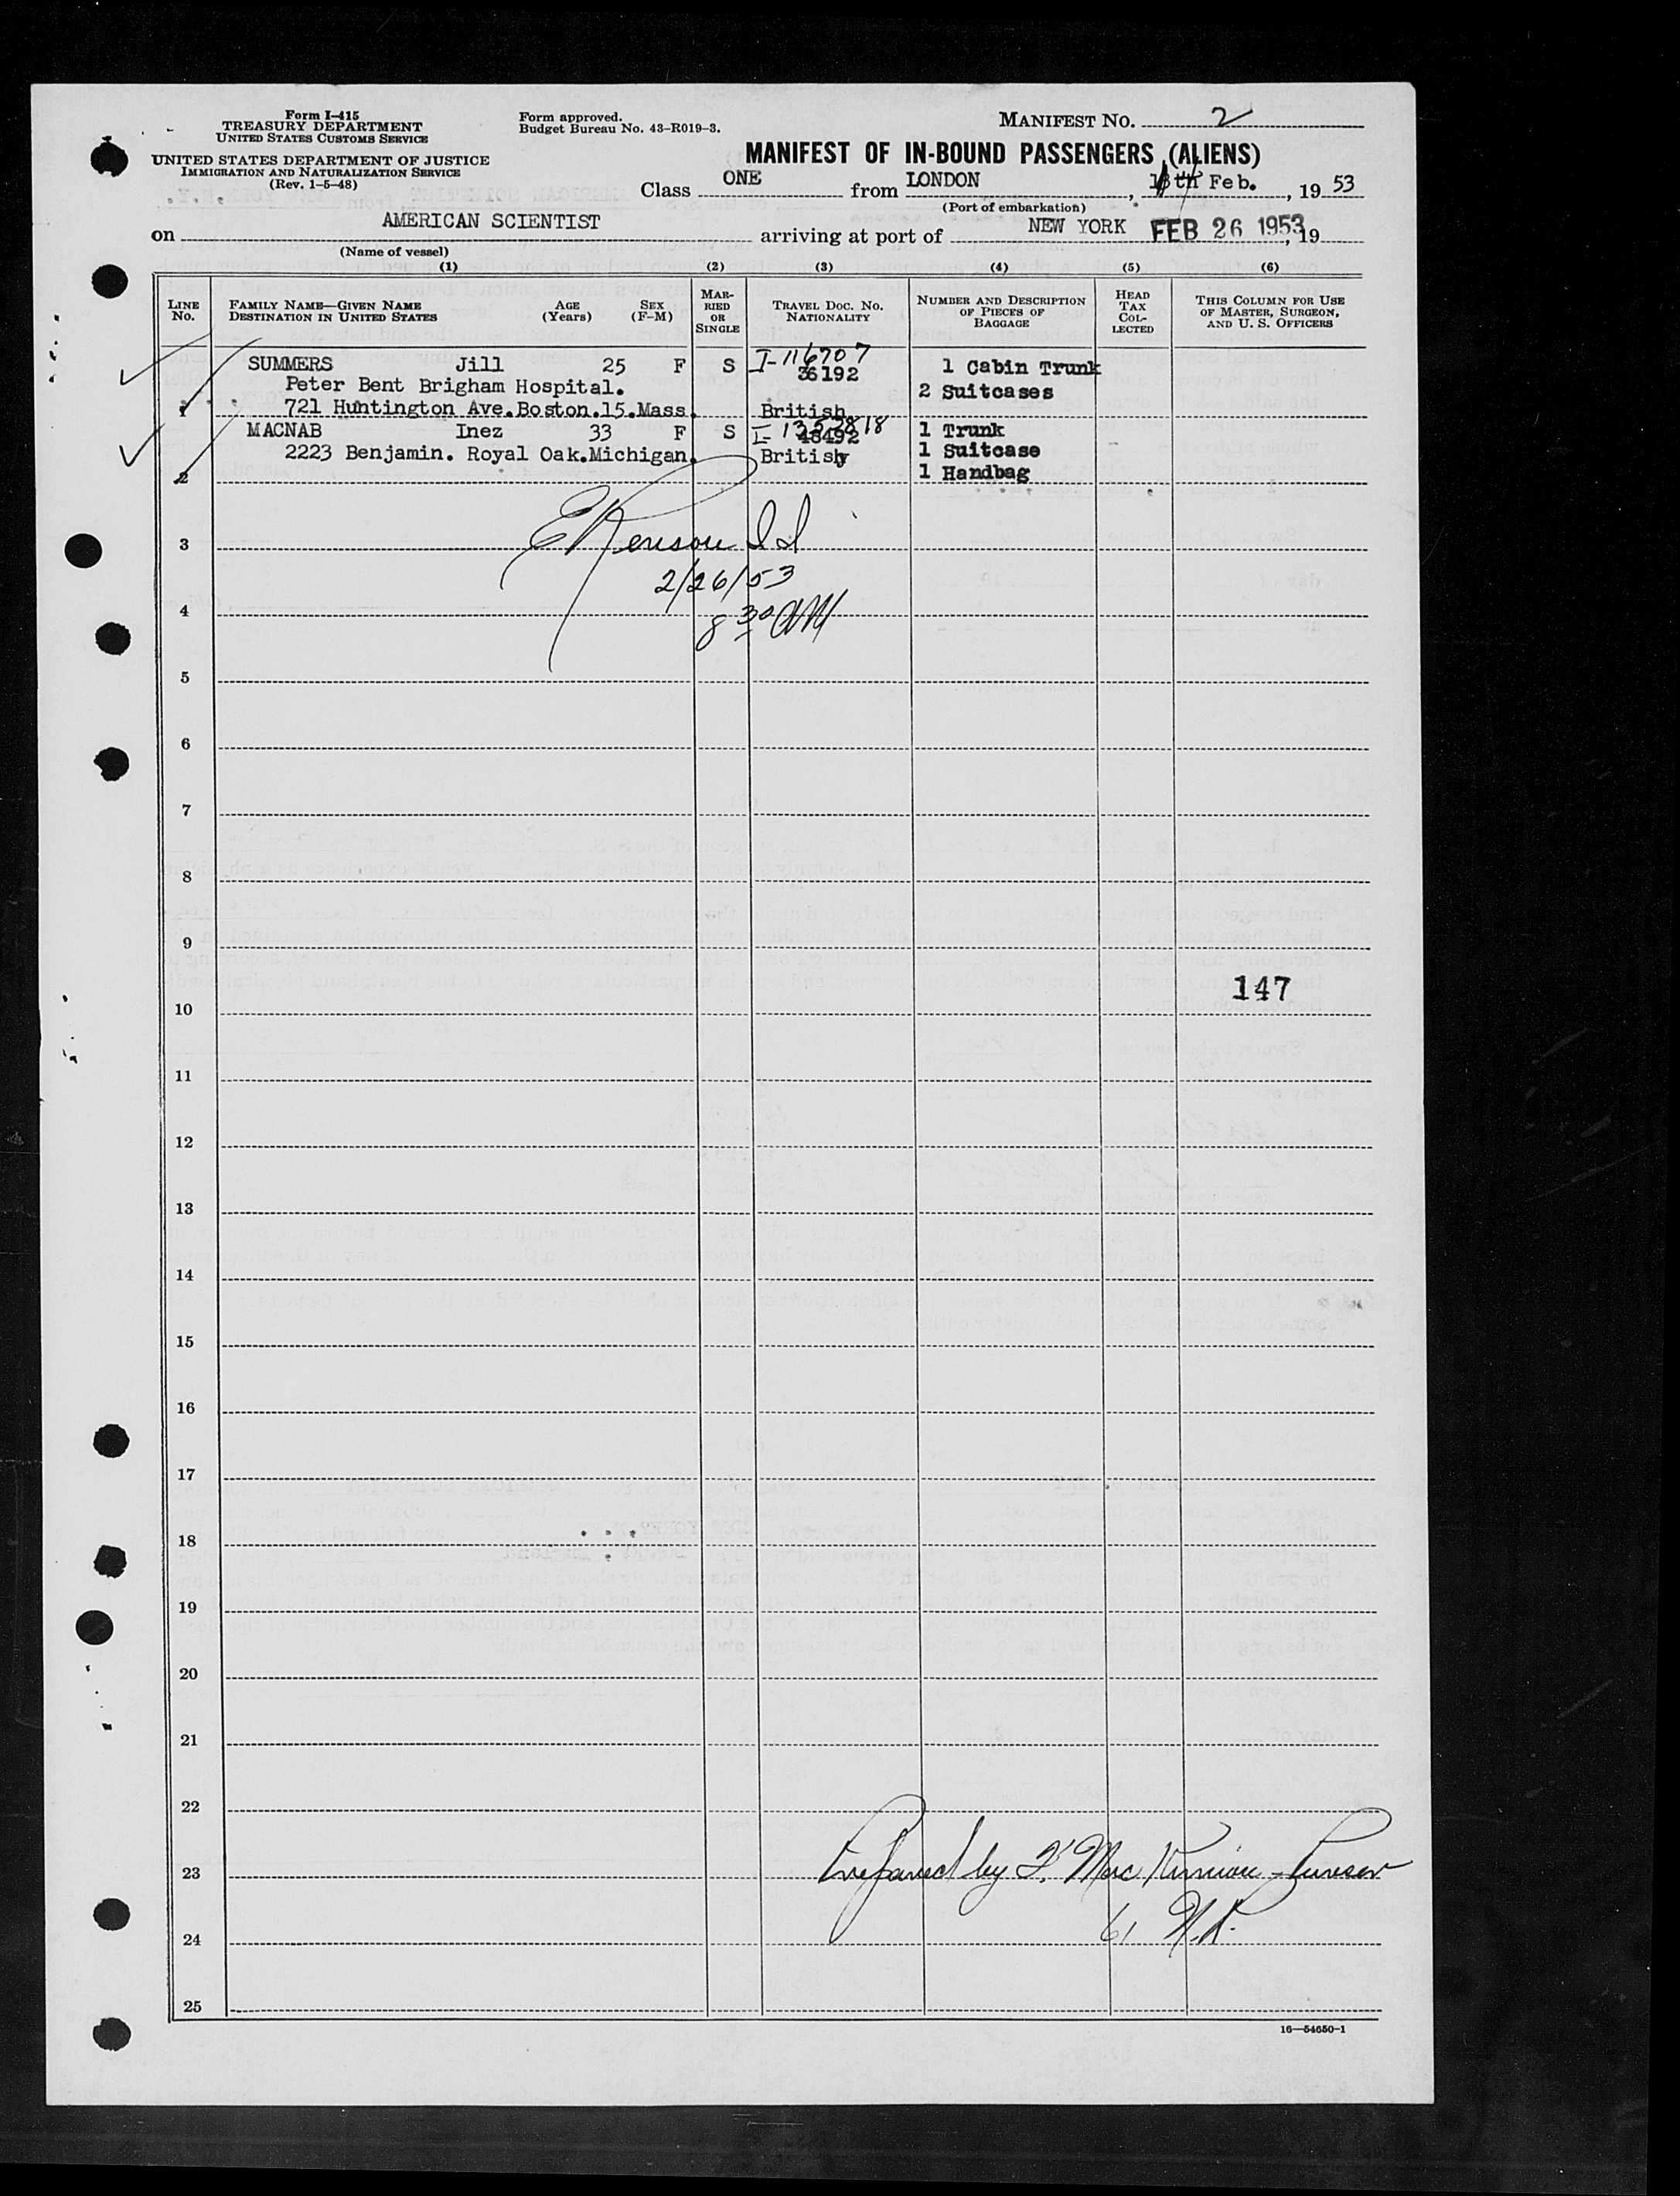 Form I-415
TREASURY DEPARTMENT
UNITED STATES CUSTOMS SERVICE
UNITED STATES DEPARTMENT OF JUSTICE
IMMIGRATION AND NATURALIZATION SERVICE
(Rev. 1-5-48)
Form approved.
Budget Bureau No. 43-R019-3.
MANIFEST NO. 2
MANIFEST OF IN-BOUND PASSENGERS (ALIENS)
Class ONE from LONDON, th Feb., 19 53
(Port of embarkation)
on AMERICAN SCIENTIST arriving at port of NEW YORK FEB 26 1953, 19
(Name of vessel)
(1) (2) (3) (4) (5) (6)
LINE No. FAMILY NAME—GIVEN NAME DESTINATION IN UNITED STATES AGE (Years) SEX (F-M) MARRIED OR SINGLE TRAVEL DOC. NO. NATIONALITY NUMBER AND DESCRIPTION OF PIECES OF BAGGAGE HEAD TAX COLLECTED THIS COLUMN FOR USE OF MASTER, SURGEON, AND U. S. OFFICERS
SUMMERS Jill 25 F S I-116707 1 Cabin Trunk
Peter Bent Brigham Hospital. 36192 2 Suitcases
1 721 Huntington Ave.Boston.15.Mass. British
MACNAB Inez 33 F S 48492 1 Trunk
2223 Benjamin. Royal Oak.Michigan. British 1 Suitcase
2 1 Handbag
3
2/26/53
4 8 30 AM
5
6
7
8
9
147
10
11
12
13
14
15
16
17
18
19
20
21
22
23 Prepared by Purser
24 61
25
16—54650-1